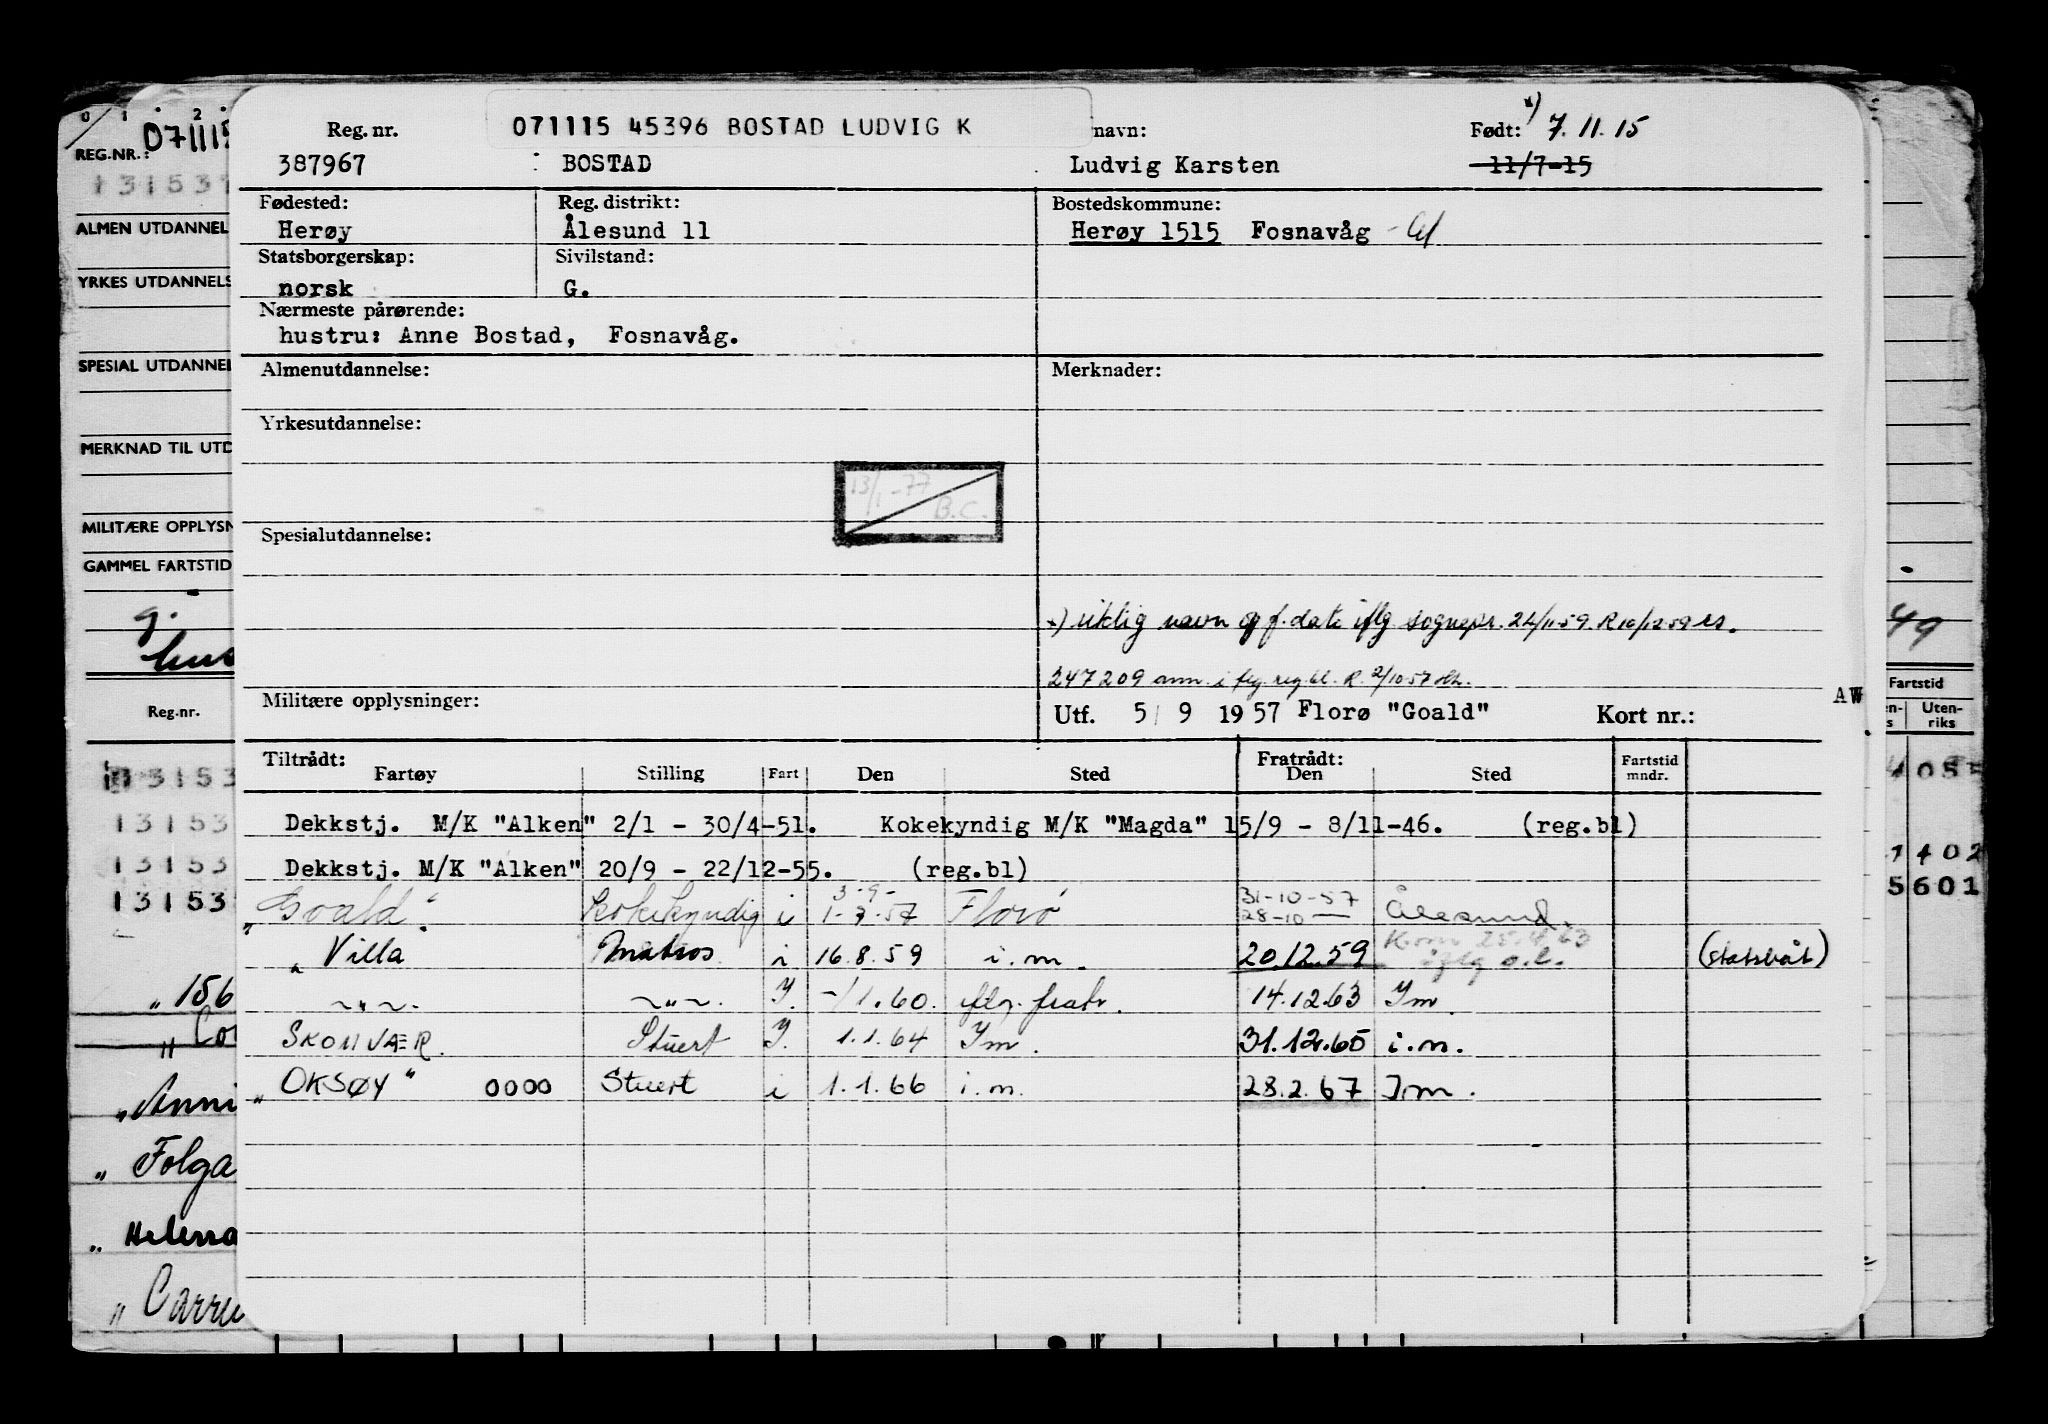 0 1 2
REG.NR.: 071115
131539
ALMEN UTDANNEL
YRKES UTDANNELS
SPESIAL UTDANNEL
MERKNAD TIL UTD
MILITÆRE OPPLYSN
GAMMEL FARTSTID
g.
hus
Reg.nr.
13153
13153
13153
13153
„156
„Co
„Anni
„Folga
„Helena
„Carrie
Reg. nr. 071115 45396 BOSTAD LUDVIG K navn: Født: *) 7.11.15
387967 BOSTAD Ludvig Karsten 11/7-15
Fødested: Reg. distrikt: Bostedskommune:
Herøy Ålesund 11 Herøy 1515 Fosnavåg
Statsborgerskap: Sivilstand:
norsk G.
Nærmeste pårørende:
hustru: Anne Bostad, Fosnavåg.
Almenutdannelse: Merknader:
Yrkesutdannelse:
13/1-77
B.C.
Spesialutdannelse:
*) riktig navn og f.date iflg sognepr. 24/11-59. R 10/12 59 es.
247209 ann. i flg. reg.bl. R. 2/10 57
Militære opplysninger: Utf. 5/9 1957 Florø "Goald" Kort nr.:
AW
Tiltrådt: Fratrådt: Fartstid
Fartøy Stilling Fart Den Sted Den Sted mndr.
Dekkstj. M/K "Alken" 2/1 - 30/4-51. Kokekyndig M/K "Magda" 15/9 - 8/11-46. (reg.bl)
Dekkstj. M/K "Alken" 20/9 - 22/12-55. (reg.bl)
3-9- 31-10-57
„Goald" kokekyndig i 1-7-57 Florø 28-10 — Ålesund.
„Villa Matros i 16.8.59 i.m. 20.12.59 K.m 25.4.63 iflg o.l. (statsbåt)
~"~. ~"~. I. -/1.60. flg. fratr. 14.12.63 Im
SKOMVÆR. Stuert I. 1.1.64 Im. 31.12.65 i.m.
„OKSØY" 0000 Stuert i 1.1.66 i.m. 28.2.67 I.m.
49
Fartstid
Uten-
riks
4055
1402
5601